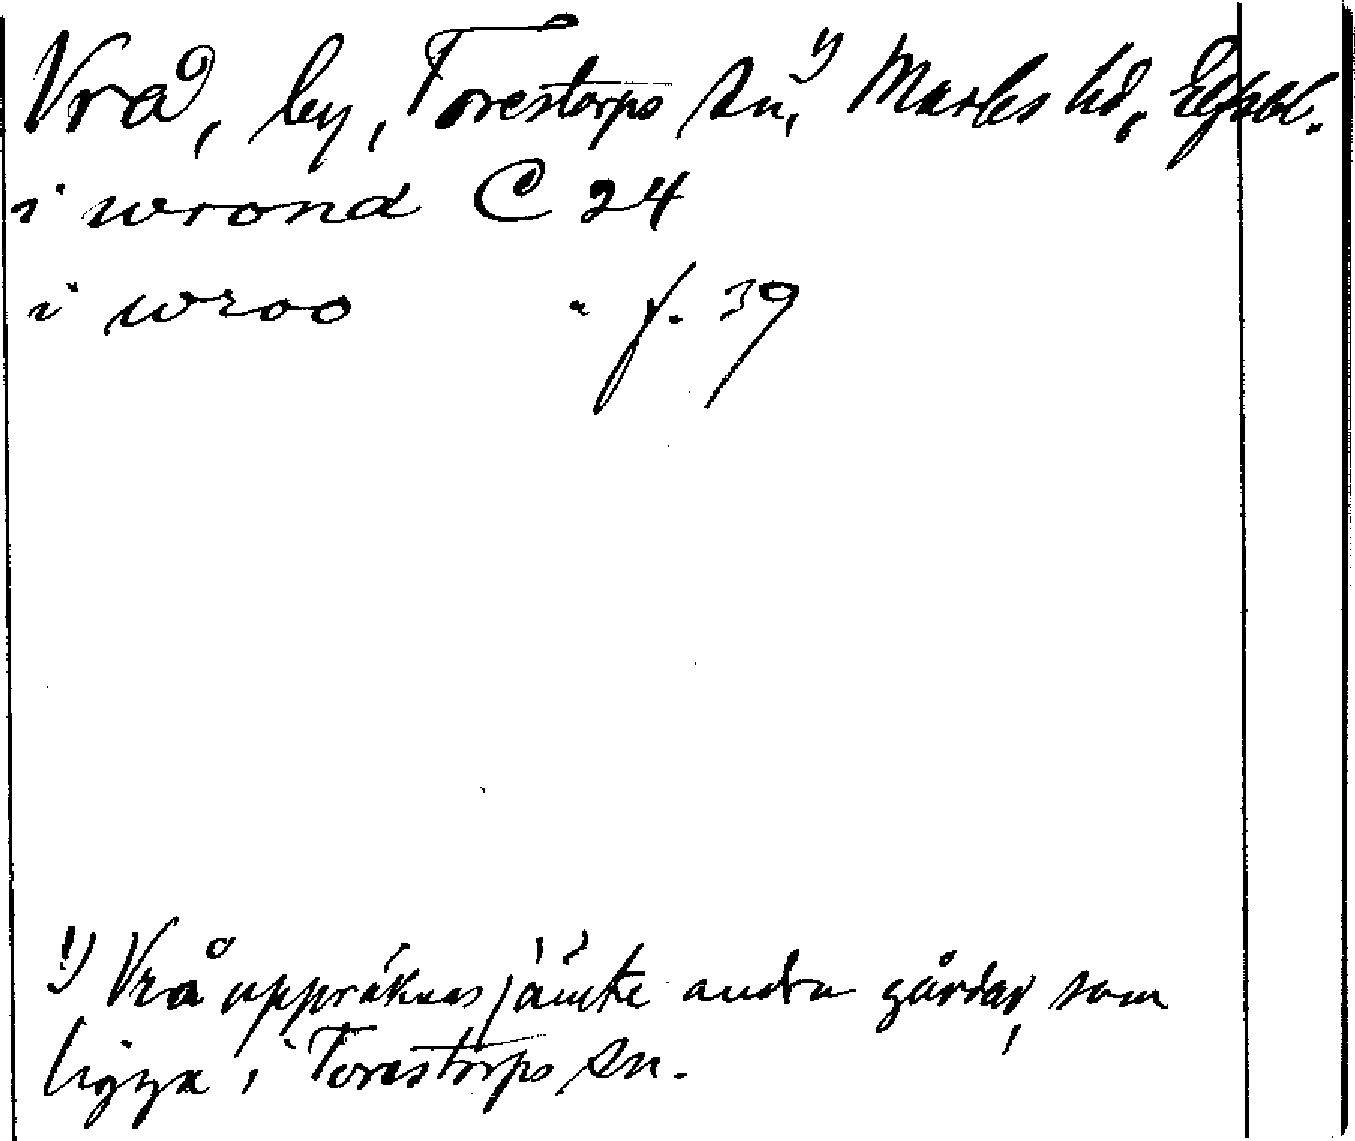 Vrå, by, Torestorps sn,¹⁾ Marks hd, Elfsbl.
i wrond C 24
i wroo " f. 39
¹⁾ Vrå uppräknas jämte andra gårdar, som
ligga i Torestorps sn.